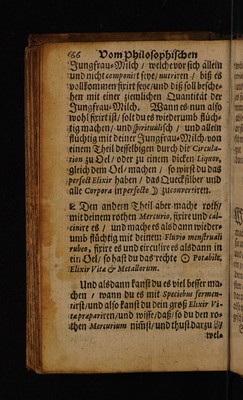 66 Vom Philosophischen
Jungfrau-Milch / welche vor sich allein
und nicht componirt seye / nutriren / biß es
vollkommen fixirt seye / und diß soll besche-
hen mit einer ziemlichen Quantität der
Jungfrau-Milch. Wann es nun also
wohl fixirt ist / solt du es wiederumb flüch-
tig machen / und spiritualisch / und allein
flüchtig mit deiner Jungfrau-Milch von
einem Theil desselbigen durch die Circula-
tion zu Oel / oder zu einem dicken Liquor,
gleich dem Oel / machen / so wirst du das
perfect Elixir haben / das Quecksilber und
alle Corpora imperfecte ☽ zu convertiren.
Den andern Theil aber mache roth /
mit deinem rothen Mercurio, fixire und cal-
cinire es / und mache es alsdann wieder-
umb flüchtig mit deinem Fluvio menstruali
rubeo, fixire es und circulire es alsdann in
ein Oel / so hast du das rechte ☉ Potabile,
Elixir Vitæ & Metallorum.
Und alsdann kanst du es viel besser ma-
chen / wann du es mit Speciebus fermen-
tirst / und also kanst du dein groß Elixir Vi-
tæ præpariren / und wisse / daß / so du den ro-
then Mercurium nimst / und thust darzu
wel-